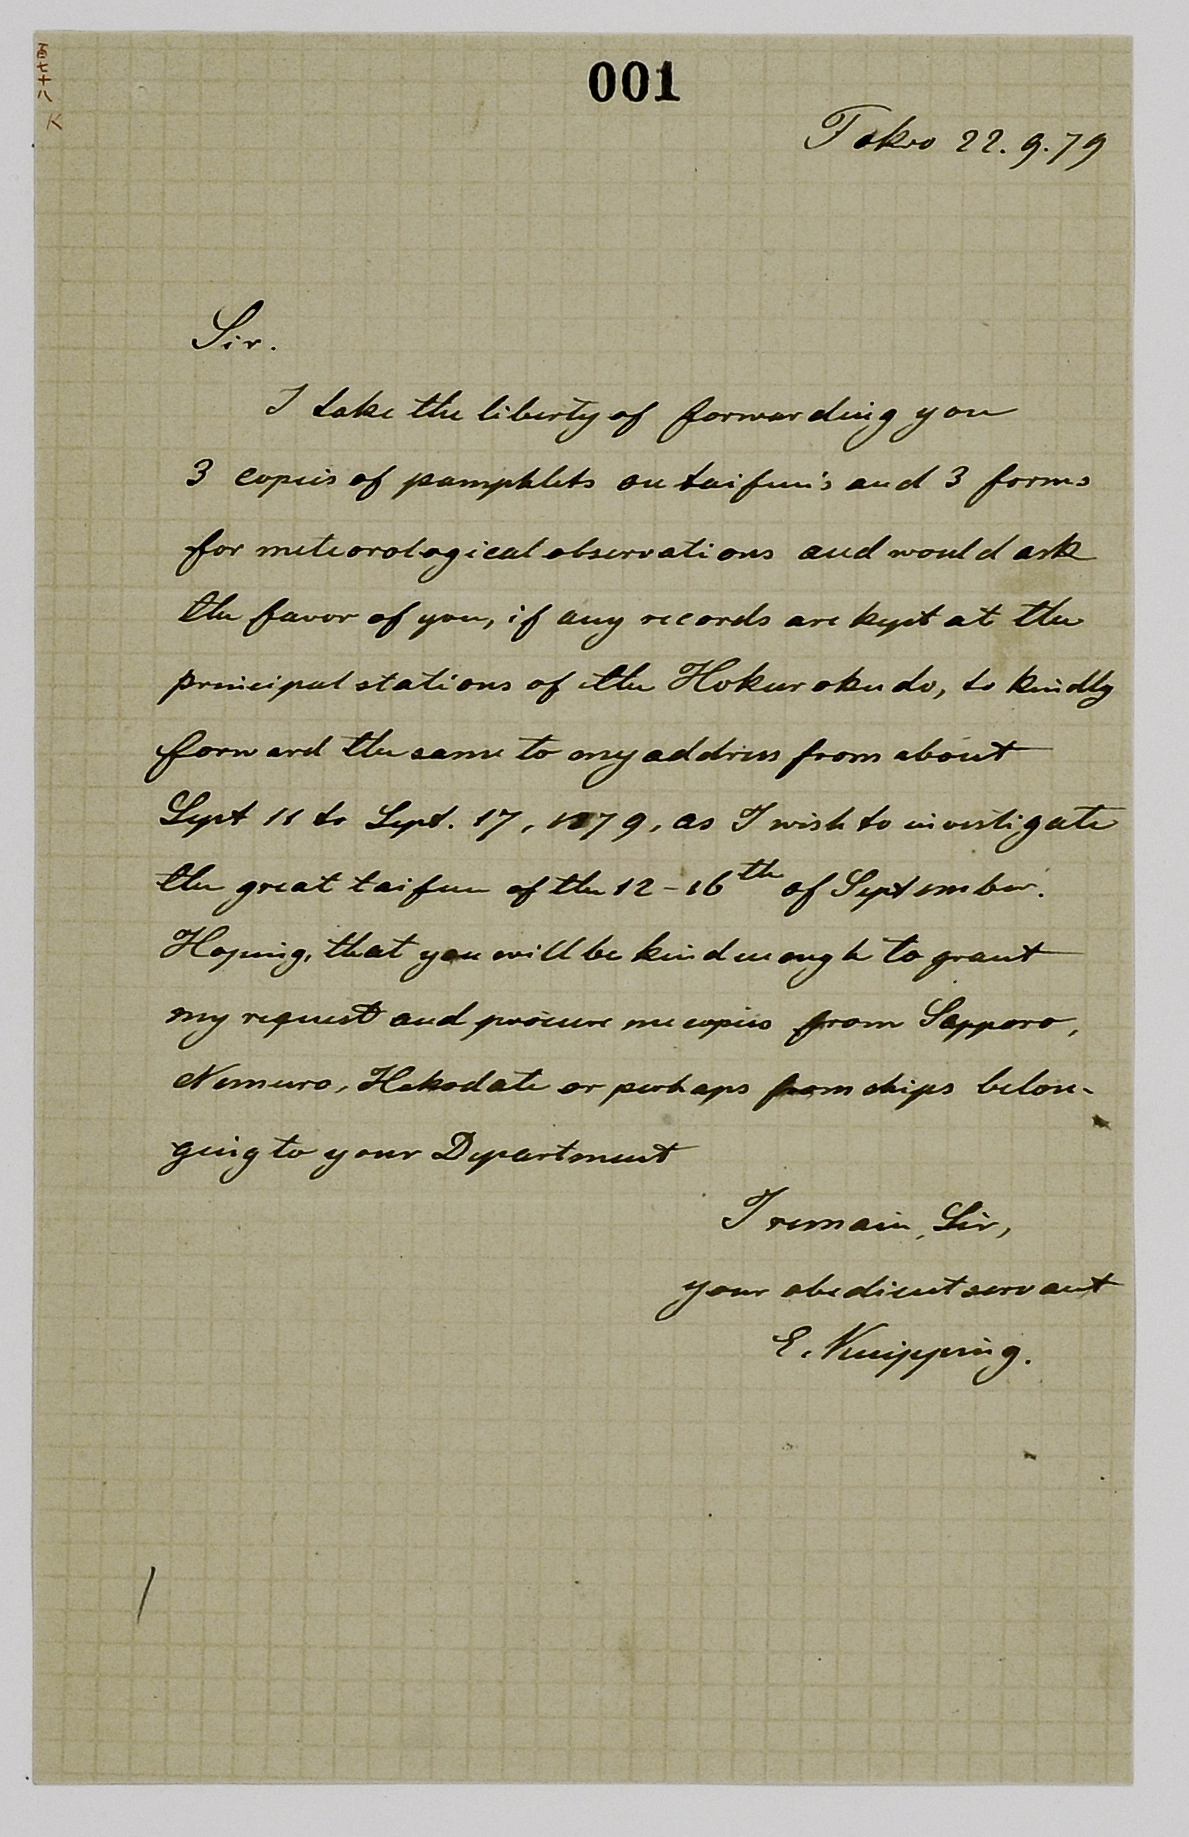 001
Tokio 22. 9. 79
Sir.
I take the liberty of forwarding you
3 copies of pamphlets on taifun's and 3 forms
for meteorological observations and would ask
the favor of you, if any records are kept at the
principal stations of the Hokurokudo, to kindly
forward the same to my address from about
Sept 11 to Sept. 17, 1879, as I wish to investigate
the great taifun of the 12-16th of September.
Hoping, that you will be kind enough to grant
my request and procure me copies from Sapporo,
Nemuro, Hakodate or perhaps from ships belon-
ging to your Department
I remain, Sir,
your obedient servant
E. Knipping.